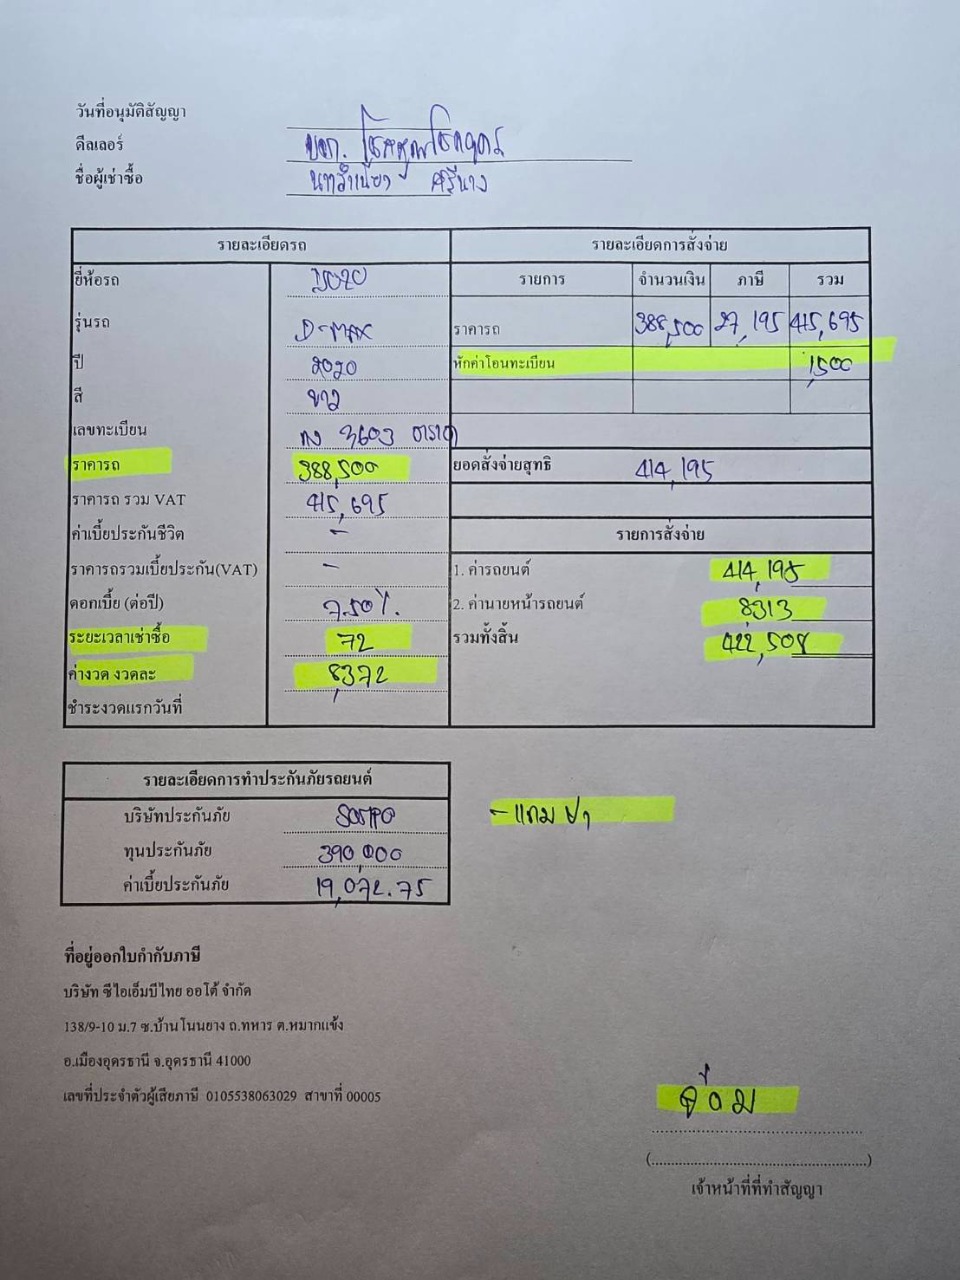 วันที่อนุมัติสัญญา
ดีลเลอร์ บจก.
ชื่อผู้เช่าซื้อ
รายละเอียดรถ
ยี่ห้อรถ
รุ่นรถ D-MAX
ปี 2020
สี ขาว
เลขทะเบียน 3603
ราคารถ 388,500
ราคารถ รวม VAT 415,695
ค่าเบี้ยประกันชีวิต -
ราคารถรวมเบี้ยประกัน(VAT) -
ดอกเบี้ย (ต่อปี) 7.50%.
ระยะเวลาเช่าซื้อ 72
ค่างวด งวดละ 8,372
ชำระงวดแรกวันที่
รายละเอียดการสั่งจ่าย
รายการ จำนวนเงิน ภาษี รวม
ราคารถ 388,500 27,195 415,695
หักค่าโอนทะเบียน 1,500
ยอดสั่งจ่ายสุทธิ 414,195
รายการสั่งจ่าย
1. ค่ารถยนต์ 414,195
2. ค่านายหน้ารถยนต์ 8313
รวมทั้งสิ้น 422,508
รายละเอียดการทำประกันภัยรถยนต์
บริษัทประกันภัย SOMPO
ทุนประกันภัย 390,000
ค่าเบี้ยประกันภัย 19,072.75
- แถม
ที่อยู่ออกใบกำกับภาษี
บริษัท ซีไอเอ็มบีไทย ออโต้ จำกัด
138/9-10 ม.7 ซ.บ้านโนนยาง ถ.ทหาร ต.หมากแข้ง
อ.เมืองอุดรธานี จ.อุดรธานี 41000
เลขที่ประจำตัวผู้เสียภาษี 0105538063029 สาขาที่ 00005
(................................................)
เจ้าหน้าที่ที่ทำสัญญา